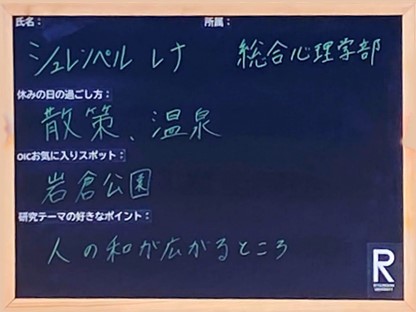 氏名： 所属：
シュレンペル レナ 総合心理学部
休みの日の過ごし方：
散策、温泉
OICお気に入りスポット：
岩倉公園
研究テーマの好きなポイント：
人の和が広がるところ
R
RITSUMEIKAN
UNIVERSITY